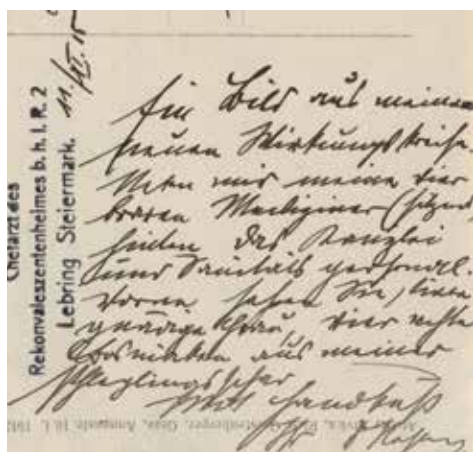 Chefarzt des
Rekonvaleszentenheimes b. h. I. R. 2
Lebring Steiermark. 11./XI. 15
Ein Bild aus meinem
neuen Wirkungskreise.
Neben mir meine vier
braven Mediziner (sitzend)
hinten das Kanzlei
und Sanitäts personal.
Vorne sehen Sie, liebe
gnädige Frau, vier echte
Bosniaken aus meiner
Pfleglingsschar
Mit Handkuß
Ihr